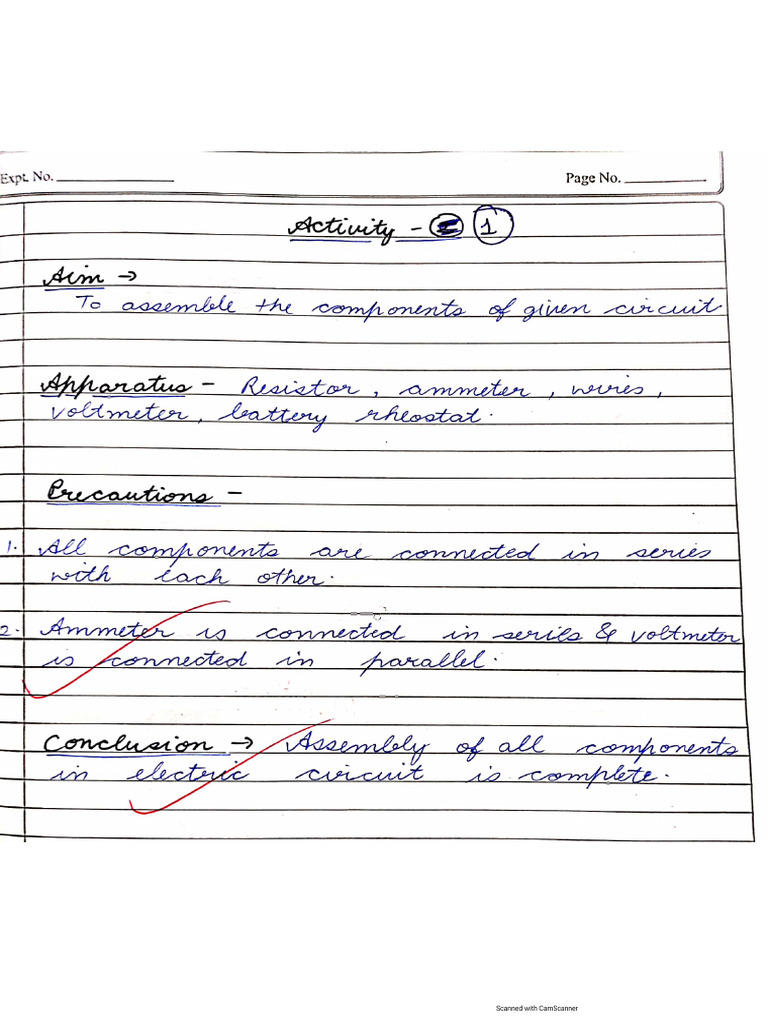 Expt. No. ____________ Page No. ____________
Activity - 1
Aim →
To assemble the components of given circuit
Apparatus - Resistor, ammeter, wires,
voltmeter, battery rheostat.
Precautions -
1. All components are connected in series
with each other.
2. Ammeter is connected in series & voltmeter
is connected in parallel.
Conclusion → Assembly of all components
in electric circuit is complete.
Scanned with CamScanner